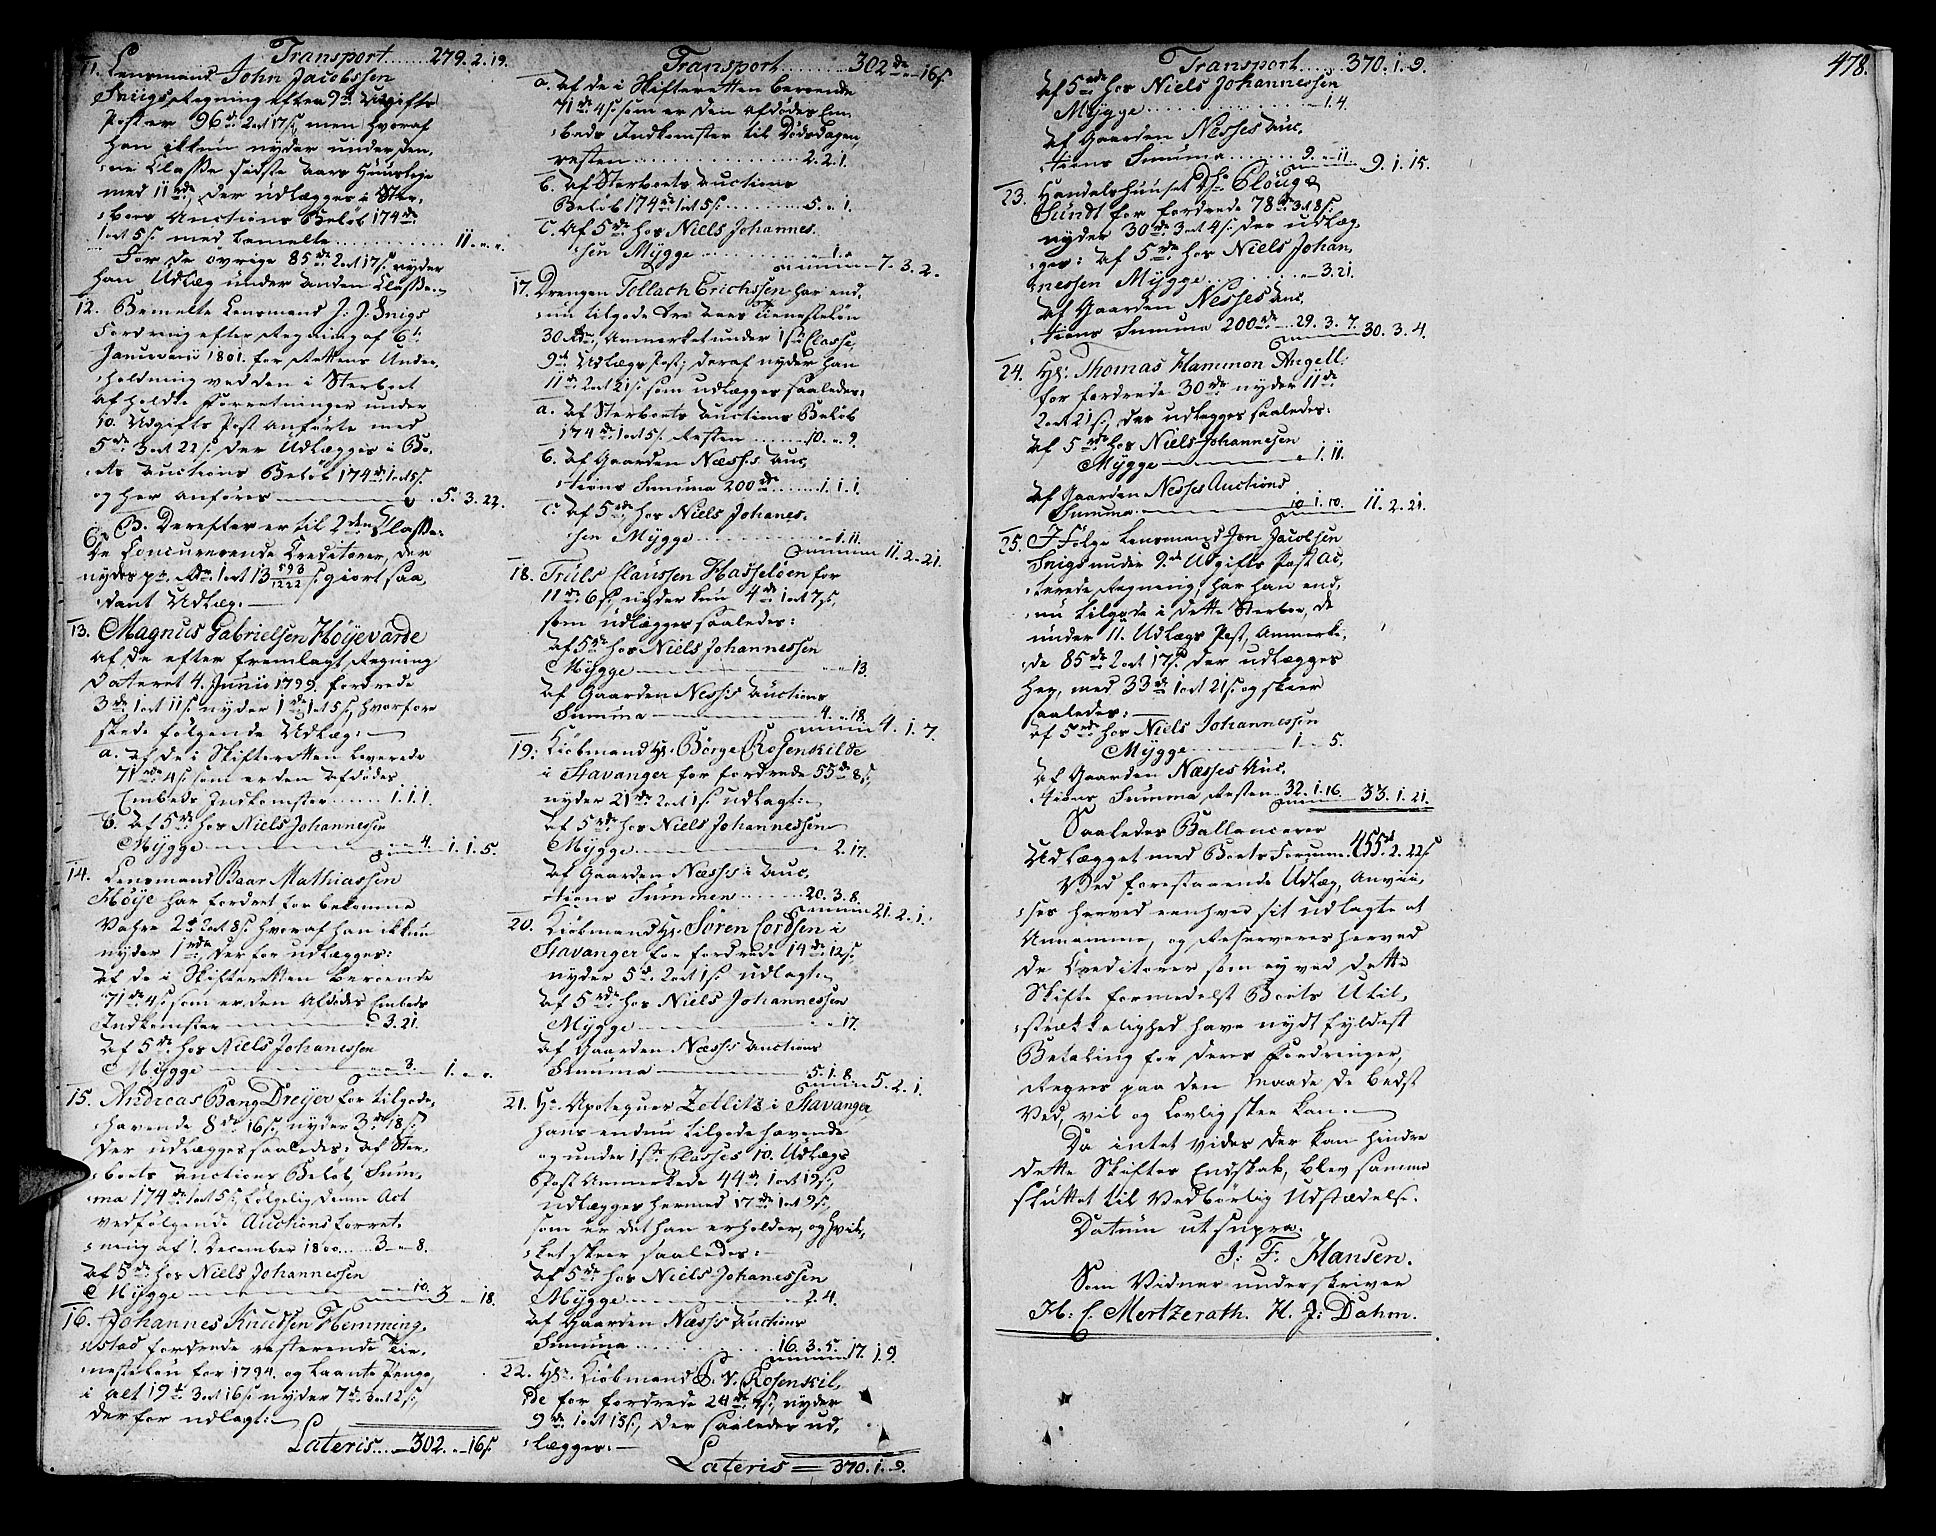 Transport......279.2.19.
11. Lensmand John Jacobssen
Snügs Regning efter 9de Udgifts
Post er 96rd. 2 ort 17 s., men hvoraf
han ikkun nyder under den,
:ne Classe sidste Aars Huusleye
med 11rd., der udlægges i Ster,
:boes Auctions Beløb 174rd.
1 ort 5 s. med bemelte............11.".".
For de øvrige 85rd. 2 ort 17 s. nyder
han Udlæg under anden Classe.
12. Bemelte Lensmand J. J. Snigs
Fordring efter Regning af 6t.
Januarii 1801. for Rettens Under,
:holdning ved den i Sterboet
afholdte Forretninger under
10. Udgifts Post anførte med
5rd. 3 ort 22 s. der Udlægges i Bo,
:ets Auctions Beløb 174rd. 1 ort 5 s.
og her anføres 5.3.22.
B. Derefter er til 2den Classe:
de Concurerende Creditorer, der
nyder pr. Rdr. 1 ort 13 593/1222 s. giort saa,
:dant Udlæg.
13. Magnus Gabrielsen Høyevarde
af de efter fremlagt Regning
dateret 4. Junii 1799. fordrede
3rd. 1 ort 11 s. nyder 1rd. 1 ort 5 s., hvorfore
skede følgende Udlæg:
a. af de i Skifteretten leverede
71rd. 4 s. som er den afdødes
Embeds Indkomster......1.1.1.
b. af 5rd. hos Niels Johannessen
Mÿgge ".".4. 1.1.5.
14. Lensmand Baar Mathiassen
Høÿe har fordret for bekomne
Vahre 2rd. 2 ort 8 s. hvoraf han ikkun
nyder 1rd., derfor udlægges:
af de i Skifteretten beroende
71rd. 4 s. som er den Afdødes Embeds
Indkomster ".3.21.
af 5rd. hos Niels Johanessen
Mÿgge ".".3. 1.".".
15. Andreas Bang Dreÿer for tilgode,
:havende 8rd. 16 s., nyder 3rd. 18 s.
der udlægges saaledes: af Ster,
:boets Auctions Beløb, Sum,
:ma 174rd. 1 ort 5 s. følgelig denne Act
vedfølgende Auctions Forret,
:ning af 1. December 1800......3.".8.
af 5rd. hos Niels Johannessen
Mÿgge ".".10. 3.".18.
16. Johannes Knudsen Hemming,
:stad fordrede resterende Tie,
:nesteløn for 1794. og laante Penge,
i alt 19rd. 3 ort 16 s. nyder 7rd. 3 ort 2 s.,
derfor udlagt:
Lateris....302.".16 s.
Transport.........302rd.".16 s.
a. af de i Skifteretten beroende
71rd. 4 s. som er den afdødes Em,
:beds Indkomster til Dødsdagen,
resten................2.2.1.
b. af Sterboets Auctions
Beløb 174rd. 1 ort 5 s...........5.".1.
c. af 5rd. hos Niels Johannes,
:sen Mÿgge...............".1.". 7.3.2.
17. Drengen Tollach Erichssen har end,
:nu tilgode Tre Aars Tienesteløn
30 Rdr., Anmerket under 1ste Classe,
9de Udlægs Post; deraf nyder han
11rd. 2 ort 21 s. som udlægges saaledes:
a. af Sterboets Auctions Beløb
174rd. 1 ort 5 s. Resten ........10.".9.
b. af Gaarden Næss's Auc,
:tions Summa 200rd.........1.1.1.
c. af 5rd. hos Niels Johanes,
:sen Mÿgge ".1.11. 11.2.21.
18. Trüls Claussen Hasseløen for
11rd. 6 s., nyder kun 4rd. 1 ort 7 s.,
som udlægges saaledes:
af 5rd. hos Niels Johannessen
Mÿgge ".".13.
af Gaarden Ness's Auctions
Summa 4.".18. 4.1.7.
19. Kiøbmand Hr. Børge Rosenkilde
i Stavanger for fordrede 55rd. 8 s.,
nyder 21rd. 2 ort 1 s. udlagt:
af 5rd. hos Niels Johannessen
Mÿgge ".2.17.
af Gaarden Næss's Auc,
:tions Summen.......20.3.8. 21.2.1.
20. Kiøbmand Hr. Søren Cordsen i
Stavanger for fordrede 14rd. 12 s.,
nyder 5rd. 2 ort 1 s. udlagt:
af 5rd. hos Niels Johannessen
Mÿgge ".".17.
af Gaarden Næss's Auctions
Summa 5.1.8. 5.2.1.
21. Hr. Apotequer Zetlitz i Stavanger,
hans endnu tilgode havende
og under 1ste Classes 10. Udlægs
Post Anmerkede 44rd. 1 ort 19 s.,
udlægges hermed 17rd. 1 ort 9 s.,
som er det han erholder, og hvil,
:ket skeer saaledes:
af 5rd. hos Niels Johanessen
Mÿgge ".2.4.
af Gaarden Næss's Auctions
Summa...............16.3.5. 17.1.9.
22. Hr. Kiøbmand P. V. Rosenkil,
de for fordrede 24rd. 4 s., nyder
9rd. 1 ort 15 s., der saaledes ud,
:lægges:
Lateris = 370.1.9.
478.
Transport......370.1.9.
af 5rd. hos Niels Johannessen
Mÿgge....................".1.4.
af Gaarden Nesses Auc,
:tions Summa.......9.".11. 9.1.15.
23. Handelshuuset Dhr. Ploug &
Sundt for fordrede 78rd. 3 ort 8 s.,
nyder 30rd. 3 ort 4 s. der udlæg,
:ges: af 5rd. hos Niels Johan,
:nessen Mÿgge..........".3.21.
af Gaarden Nesses Auc,
:tions Summa 200rd....29.3.7. 30.3.4.
24. Hr. Thomas Hammon Angell
for fordrede 30rd. nyder 11rd.
2 ort 21 s., der udlægges saaledes:
af 5rd. hos Niels Johannesen
Mÿgge ".1.11.
af Gaarden Nesses Auctions
Summa 10.1.10. 11.2.21.
25. I Følge Lensmand Jon Jacobsen
Snigs under 9de Udgifts Post Ac,
:terede Regning, har han end,
:nu tilgode i dette Sterboe, de
under 11. Udlægs Post, Anmerke,
:de 85rd. 2 ort 17 s. der udlægges
ham, med 33rd. 1 ort 21 s. og skeer
saaledes:
af 5rd. hos Niels Johannessen
Mÿgge 1.".5.
af Gaarden Næsses Auc,
:tions Summa, Resten 32.1.16. 33.1.21.
Saaledes Ballancerer
Udlægget med Boets Formue 455rd.2.22 s.
Ved forestaaende Udlæg, Anvii,
:ses herved eenhver sit udlagte at
Annamme, og Reserveres herved
de Creditorer som ey ved dette
Skifte formedelst Boets Util,
:strækkelighed have nydt fyldest
Betaling for deres Fordringer,
Regres paa den Maade de bedst
Ved, vil og Lovlig skee kan.
Da intet vides der kan hindre
dette Skiftes Endskab, blev samme
sluttet til Vedbørlig Udstædelse.
Datum ut supra.
J. F. Hansen.
Som Vidner underskriver
H. C. Mertzerath. H. J. Dahm.